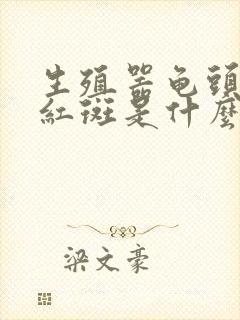 生殖器龟頭
紅斑是什麼
梁文豪